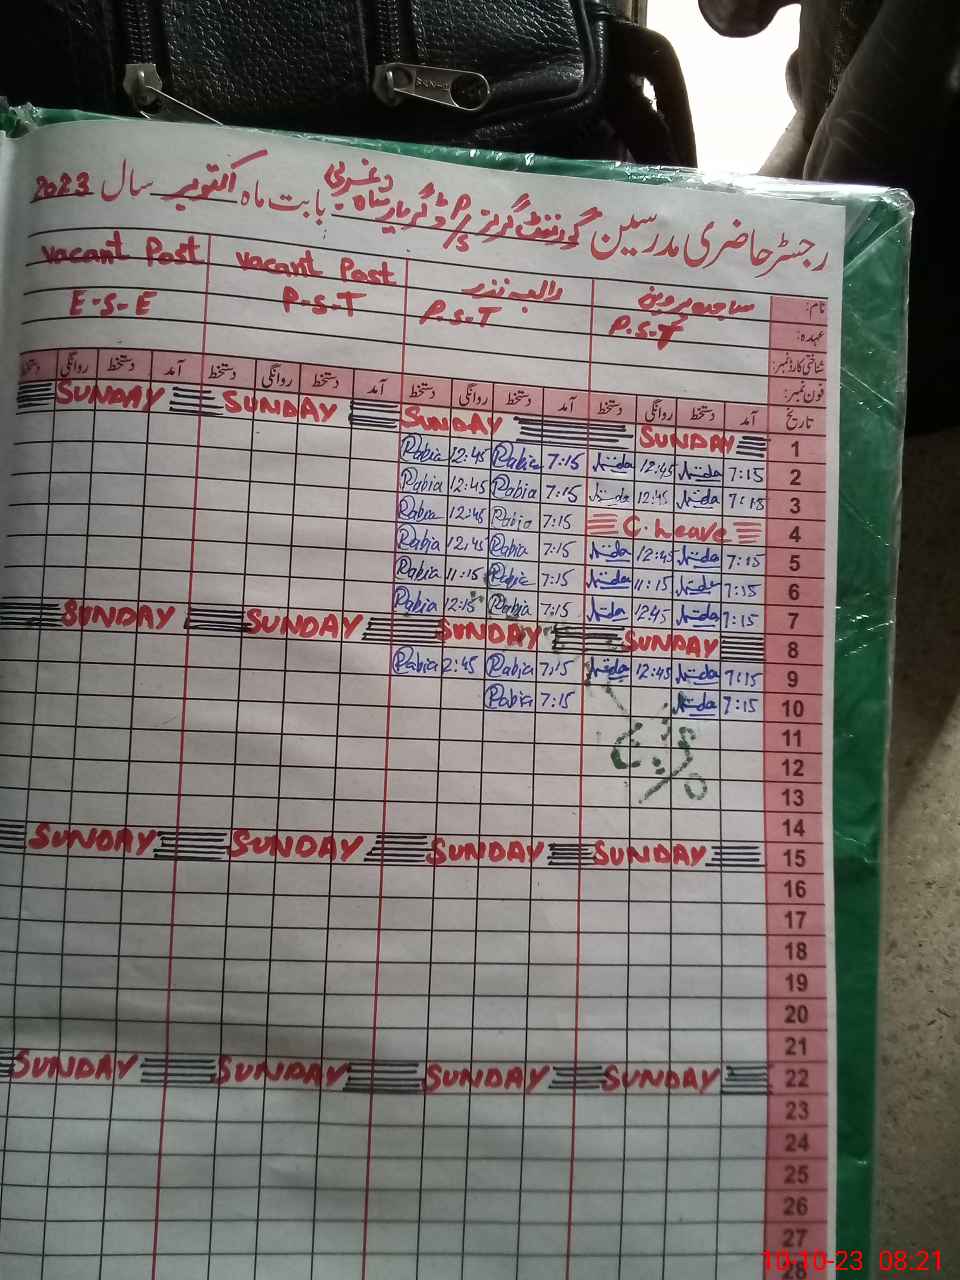 SUN-U
رجسٹر حاضری مدرسین گورنمنٹ گرلز P/S بابت ماہ اکتوبر سال 2023
نام: ساجدہ پروین رابعہ نذر Vacant Post Vacant Post
عہدہ: P.S.T P.S.T P-S-T E-S-E
شناختی کارڈ نمبر:
فون نمبر:
تاریخ آمد دستخط روانگی دستخط آمد دستخط روانگی دستخط آمد دستخط روانگی دستخط آمد دستخط روانگی دستخط
1 SUNDAY SUNDAY SUNDAY SUNDAY
2 7:15 12:45 7:15 Rabia 12:45 Rabia
3 7:15 12:45 7:15 Rabia 12:45 Rabia
4 C. Leave 7:15 Rabia 12:45 Rabia
5 7:15 12:45 7:15 Rabia 12:45 Rabia
6 7:15 11:15 7:15 Rabia 11:15 Rabia
7 7:15 12:45 7:15 Rabia 12:15 Rabia
8 SUNDAY SUNDAY SUNDAY SUNDAY
9 7:15 12:45 7:15 Rabia 2:45 Rabia
10 7:15 7:15 Rabia
11
12
13
14
15 SUNDAY SUNDAY SUNDAY SUNDAY
16
17
18
19
20
21
22 SUNDAY SUNDAY SUNDAY SUNDAY
23
24
25
26
27
28
10-10-23 08:21